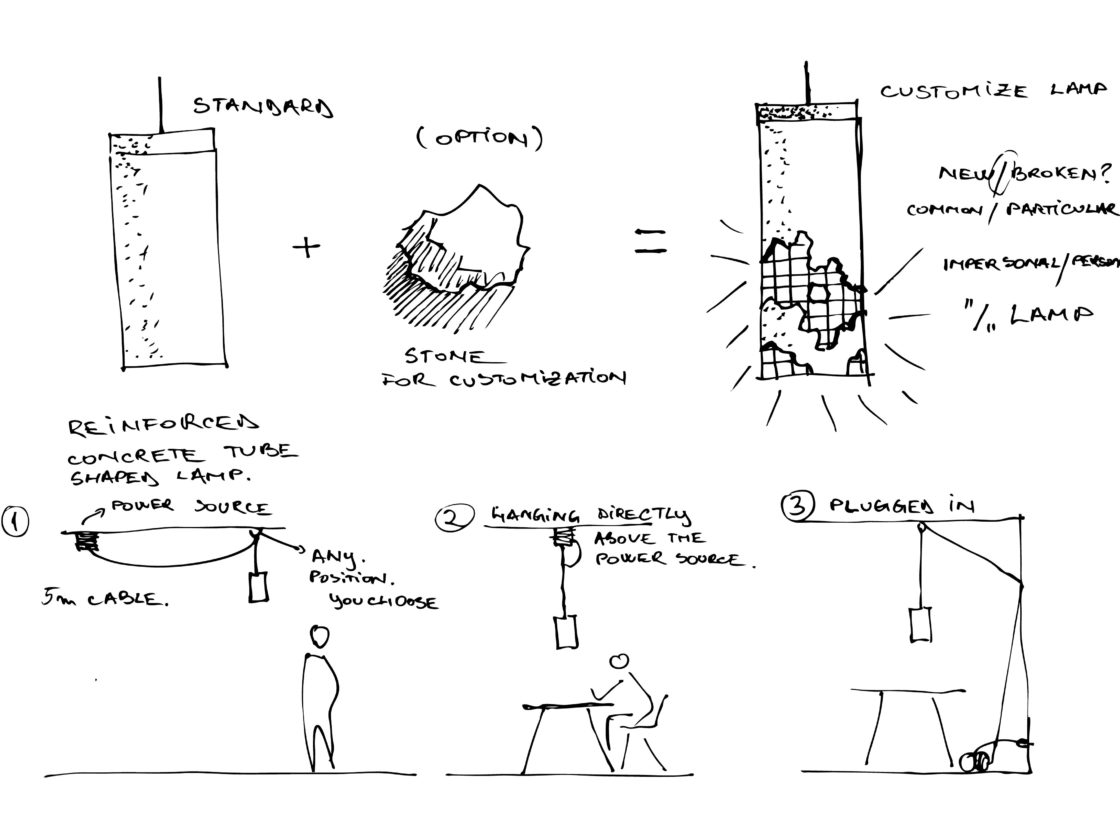 STANDARD
(OPTION)
CUSTOMIZE LAMP
NEW/BROKEN?
COMMON/PARTICULAR
IMPERSONAL/PERSON
"/„ LAMP
+
=
STONE
FOR CUSTOMIZATION
REINFORCED
CONCRETE TUBE
SHAPED LAMP.
1
POWER SOURCE
5m CABLE.
ANY.
POSITION.
YOU CHOOSE
2 HANGING DIRECTLY
ABOVE THE
POWER SOURCE.
3 PLUGGED IN